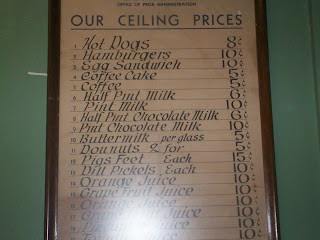 OFFICE OF PRICE ADMINISTRATION
OUR CEILING PRICES
1 Hot Dogs 8¢
2 Hamburgers 10¢
3 Egg Sandwich 10¢
4 Coffee Cake 5¢
5 Coffee 5¢
6 Half Pint Milk 6¢
7 Pint Milk 10¢
8 Half Pint Chocolate Milk 6¢
9 Pint Chocolate Milk 10¢
10 Buttermilk per glass 5¢
11 Dounuts 2 for 5¢
12 Pigs Feet Each 15¢
13 Dill Pickels Each 5¢
14 Orange Juice 10¢
15 Grape Fruit Juice 10¢
Juice 10¢
Juice 10¢
Juice 10¢